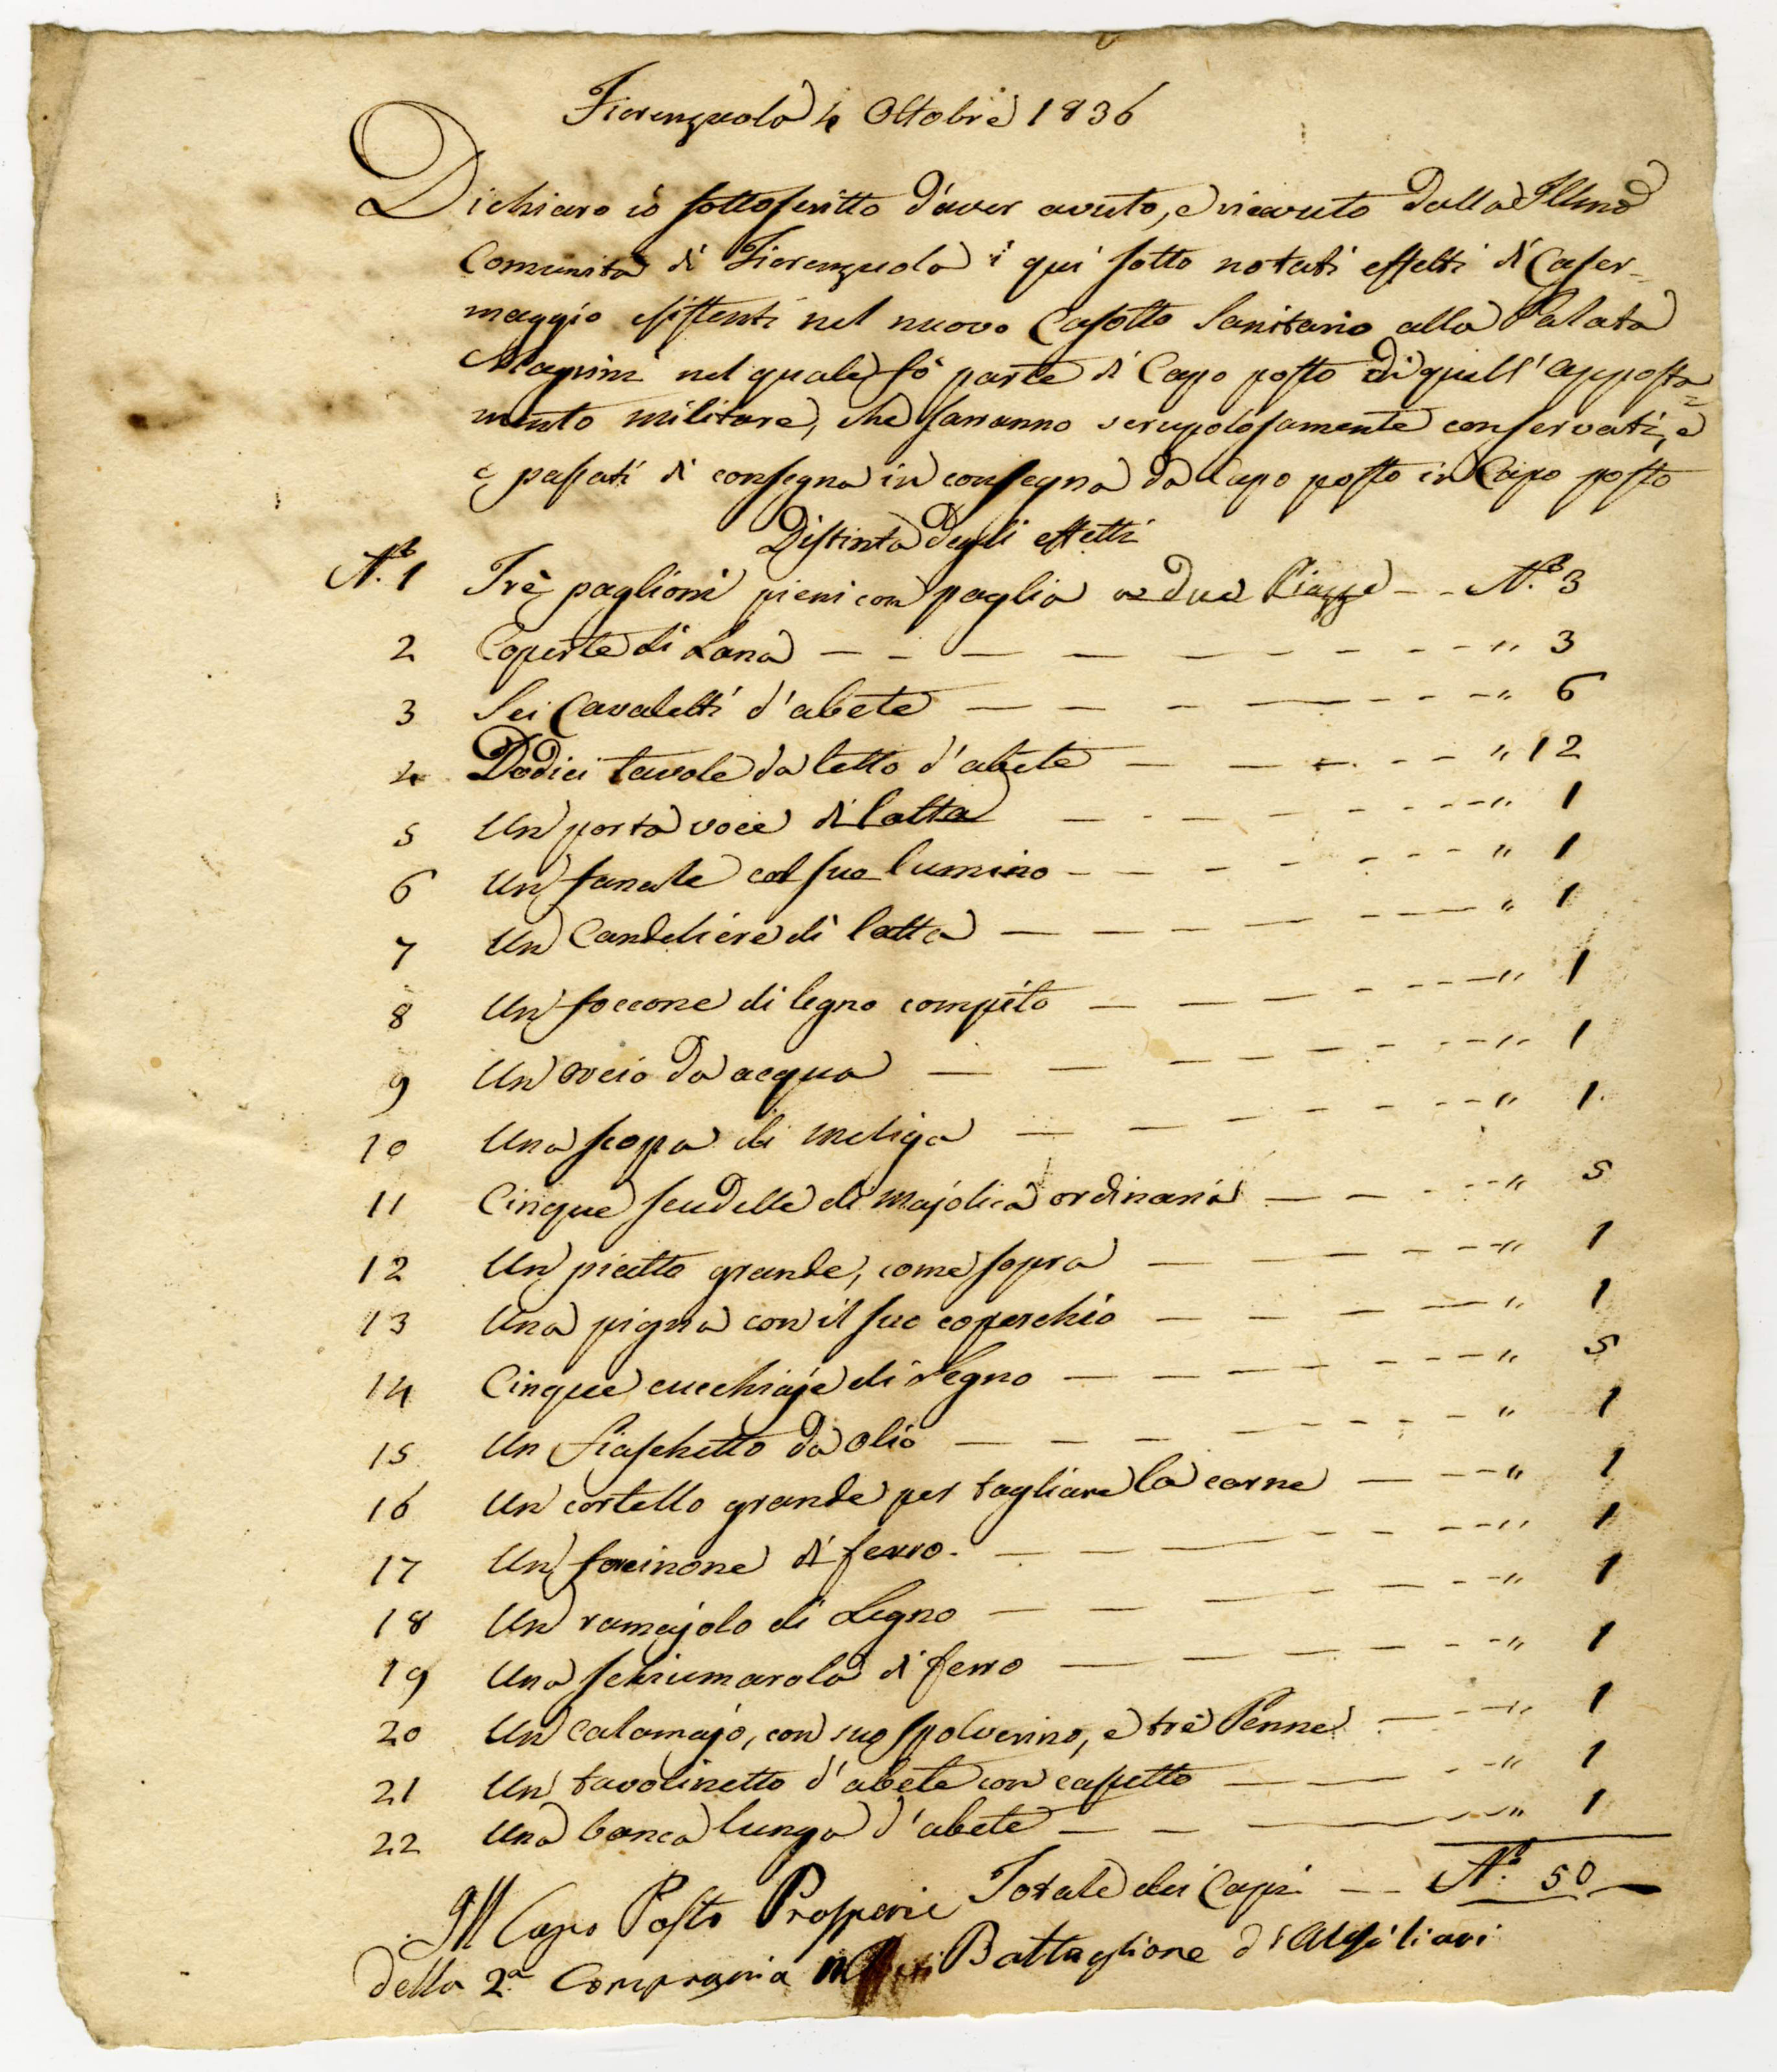 Fiorenzuola 4 Ottobre 1836
Dichiaro io sottoscritto d'aver avuto, e ricevuto dalla Illma
Comunità di Fiorenzuola i qui sotto notati effetti di Caser-
maggio esistenti nel nuovo Casotto Sanitario alla Palata
nel quale fò parte di Capo posto di quell' apposta=
mento militare, che saranno scrupolosamente conservati, e
e passati di consegna in consegna da Capo posto in Capo posto
Distinta degli effetti
N.o 1 Trè paglioni pieni con paglia a due Piazze - - N.o 3
2 Coperte di Lana " 3
3 Sei Cavaletti d'abete " 6
4 Dodici tavole da letto d'abete " 12
5 Un porta voce di latta " 1
6 Un fanale col suo lumino " 1
7 Un Candeliere di latta " 1
8 Un foccone di legno compito " 1
9 Un orcio da acqua " 1
10 Una scopa di meliga " 1.
11 Cinque scudelle di majolica ordinaria " 5
12 Un piatto grande, come sopra " 1
13 Una pigna con il suo coperchio " 1
14 Cinque cucchiaje di Legno " 5
15 Un fiaschetto da olio " 1
16 Un cortello grande per tagliare la carne " 1
17 Un forcinone di ferro. " 1
18 Un ramajolo di Legno " 1
19 Una schiumarola di ferro " 1
20 Un calamajo, con suo spolverino, e trè Penne " 1
21 Un tavolinetto d'abete con casetto " 1
22 Una banca lunga d'abete " 1
Totale dei Capi - - N.o 50
Il Capo Posto Prosperi
della 2a Compagnia Battaglione d'Ausiliari